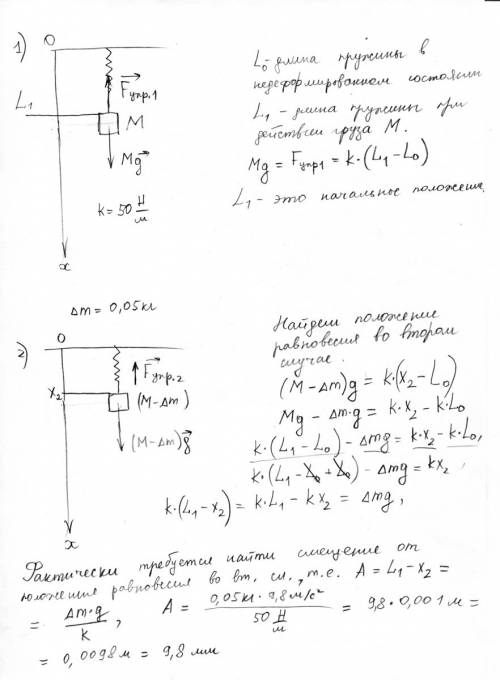 1)
O
L₀ - длина пружины в
недеформированном состоянии
L₁ - длина пружины при
действии груза M.
Mg = Fупр1 = k·(L₁-L₀)
L₁ - это начальное положение.
L₁
F⃗упр.1
M
Mg⃗
k = 50 Н/м
x
Δm = 0,05 кг
2)
O
Найдем положение
равновесия во втором
случае.
(M-Δm)g = k·(x₂-L₀)
Mg - Δm·g = k·x₂ - k·L₀
k·(L₁-L₀) - Δmg = k·x₂ - k·L₀,
k·(L₁-L₀+L₀) - Δmg = kx₂,
k·(L₁-x₂) = k·L₁ - kx₂ = Δmg,
x₂
F⃗упр.2
(M-Δm)
(M-Δm)g⃗
x
Фактически требуется найти смещение от
положения равновесия во вт. сл., т.е. A = L₁-x₂ =
= Δm·g/k, A = 0,05кг·9,8м/с²/50 Н/м = 9,8·0,001м =
= 0,0098м = 9,8 мм